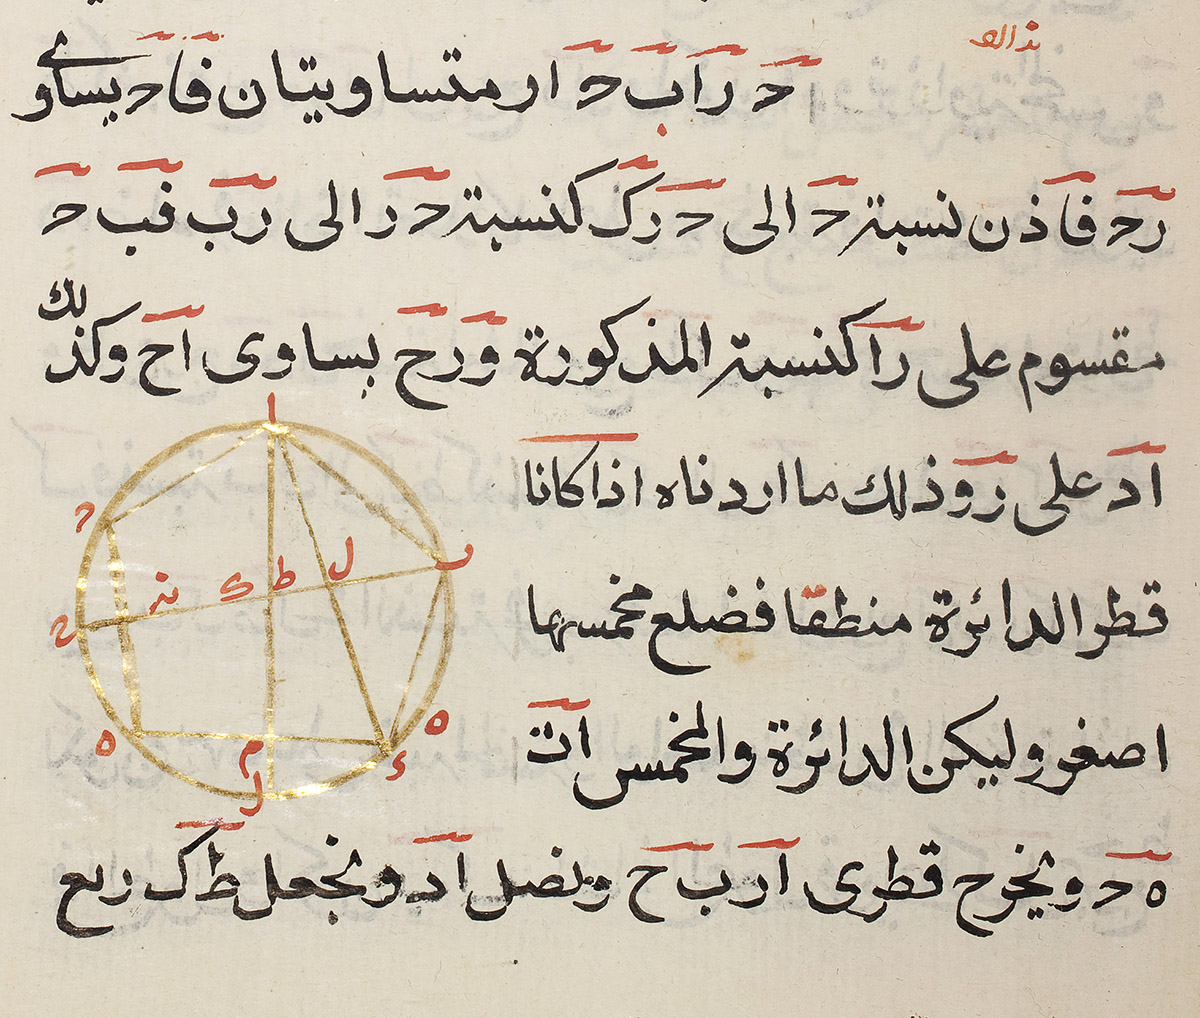 حـ راب حـ ار متساويتان فاحـ يساوي
رحـ فاذن نسبة حـ الى حـ رك كنسبة حـ ر الى رب فب حـ
مقسوم على را كنسبة المذكورة ورح يساوى اح وكذلك
اد على ر وذلك ما اردناه اذا كانا
قطر الدائرة منطقا فضلع مخمسها
اصغر وليكن الدائرة والمخمس ات
ه حـ د ونخرج قطرى ار ب ح ونصل اد ونجعل ط ك ربع
ا
ل
ط
ك
م
ه